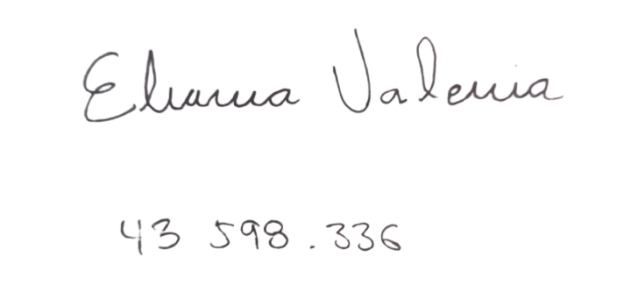 Eliana Valencia
43 598.336